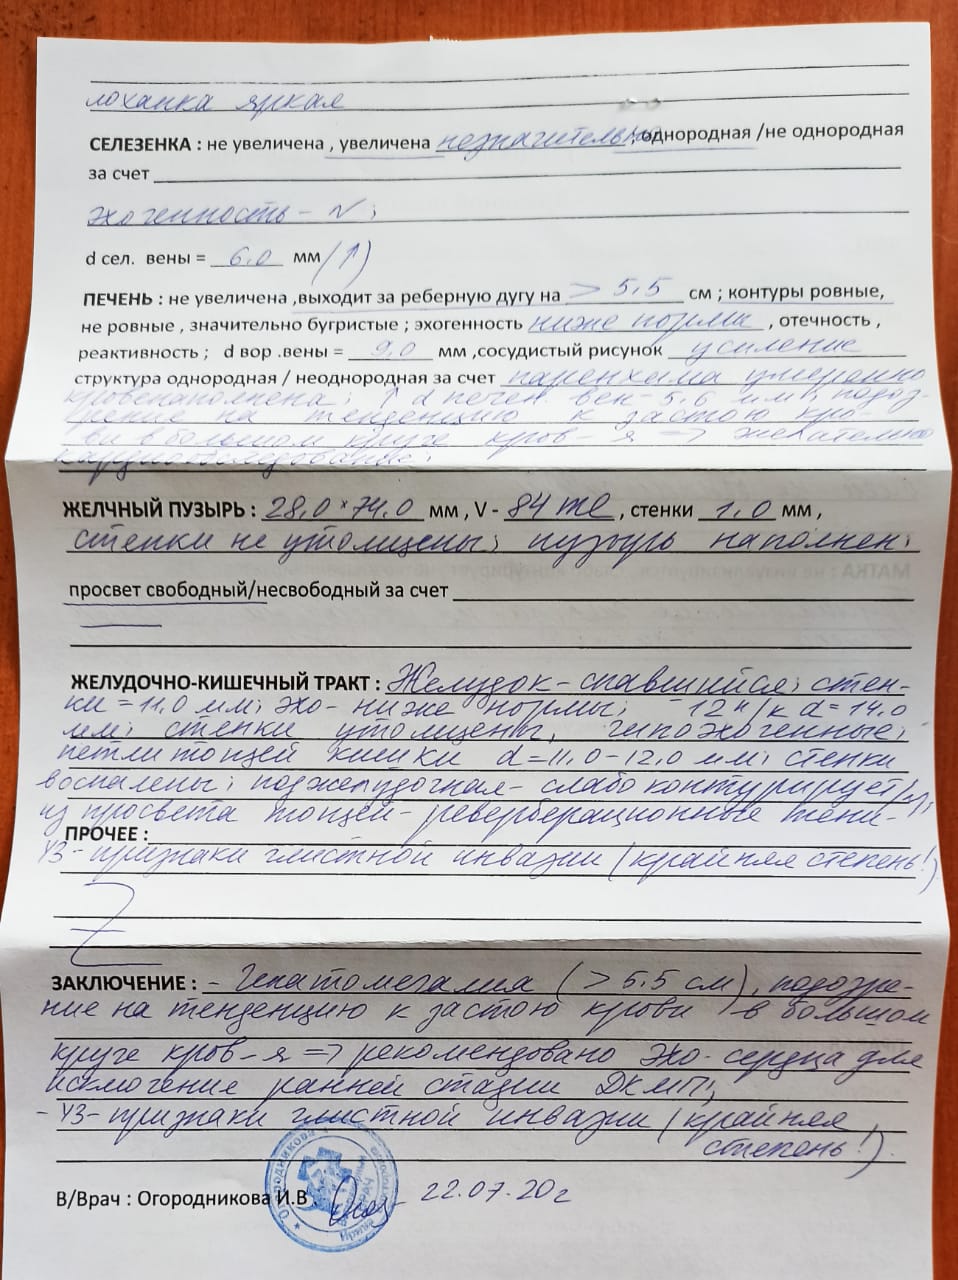 лоханка яркая
СЕЛЕЗЕНКА : не увеличена , увеличена незначительно , однородная /не однородная
за счет
эхогенность - N ;
d сел. вены = 6.0 мм (↑)
ПЕЧЕНЬ : не увеличена ,выходит за реберную дугу на > 5,5 см ; контуры ровные,
не ровные , значительно бугристые ; эхогенность ниже нормы , отечность ,
реактивность ; d вор .вены = 9,0 мм ,сосудистый рисунок усиление
структура однородная / неоднородная за счет паренхима умеренно
кровенаполнена; ↑ d печен. вен - 5,6 мм, подоз-
рение на тенденцию к застою кро-
ви в большом круге кров-я => желательно
кардиообследование;
ЖЕЛЧНЫЙ ПУЗЫРЬ : 28,0 × 74.0 мм , V - 84 ml , стенки 1,0 мм ,
стенки не утолщены; пузырь наполнен;
просвет свободный/несвободный за счет
ЖЕЛУДОЧНО-КИШЕЧНЫЙ ТРАКТ : Желудок - спавшийся; стен-
ки = 11,0 мм; эхо- ниже нормы; 12п/к d = 14,0
мм; стенки утолщены, гипоэхогенные;
петли тощей кишки d = 11,0 - 12,0 мм; стенки
воспалены; поджелудочная - слабо контурирует;
из просвета тощей - реверберационные тени -
ПРОЧЕЕ :
УЗ - признаки глистной инвазии (крайняя степень!)
ЗАКЛЮЧЕНИЕ : - Гепатомегалия (> 5,5 см), подозре-
ние на тенденцию к застою крови в большом
круге кров-я => рекомендовано Эхо-сердца для
исключение ранней стадии ДКМП;
- УЗ - признаки глистной инвазии (крайняя
степень!).
В/Врач : Огородникова И.В. 22.07.20г
Огородникова
Ирина